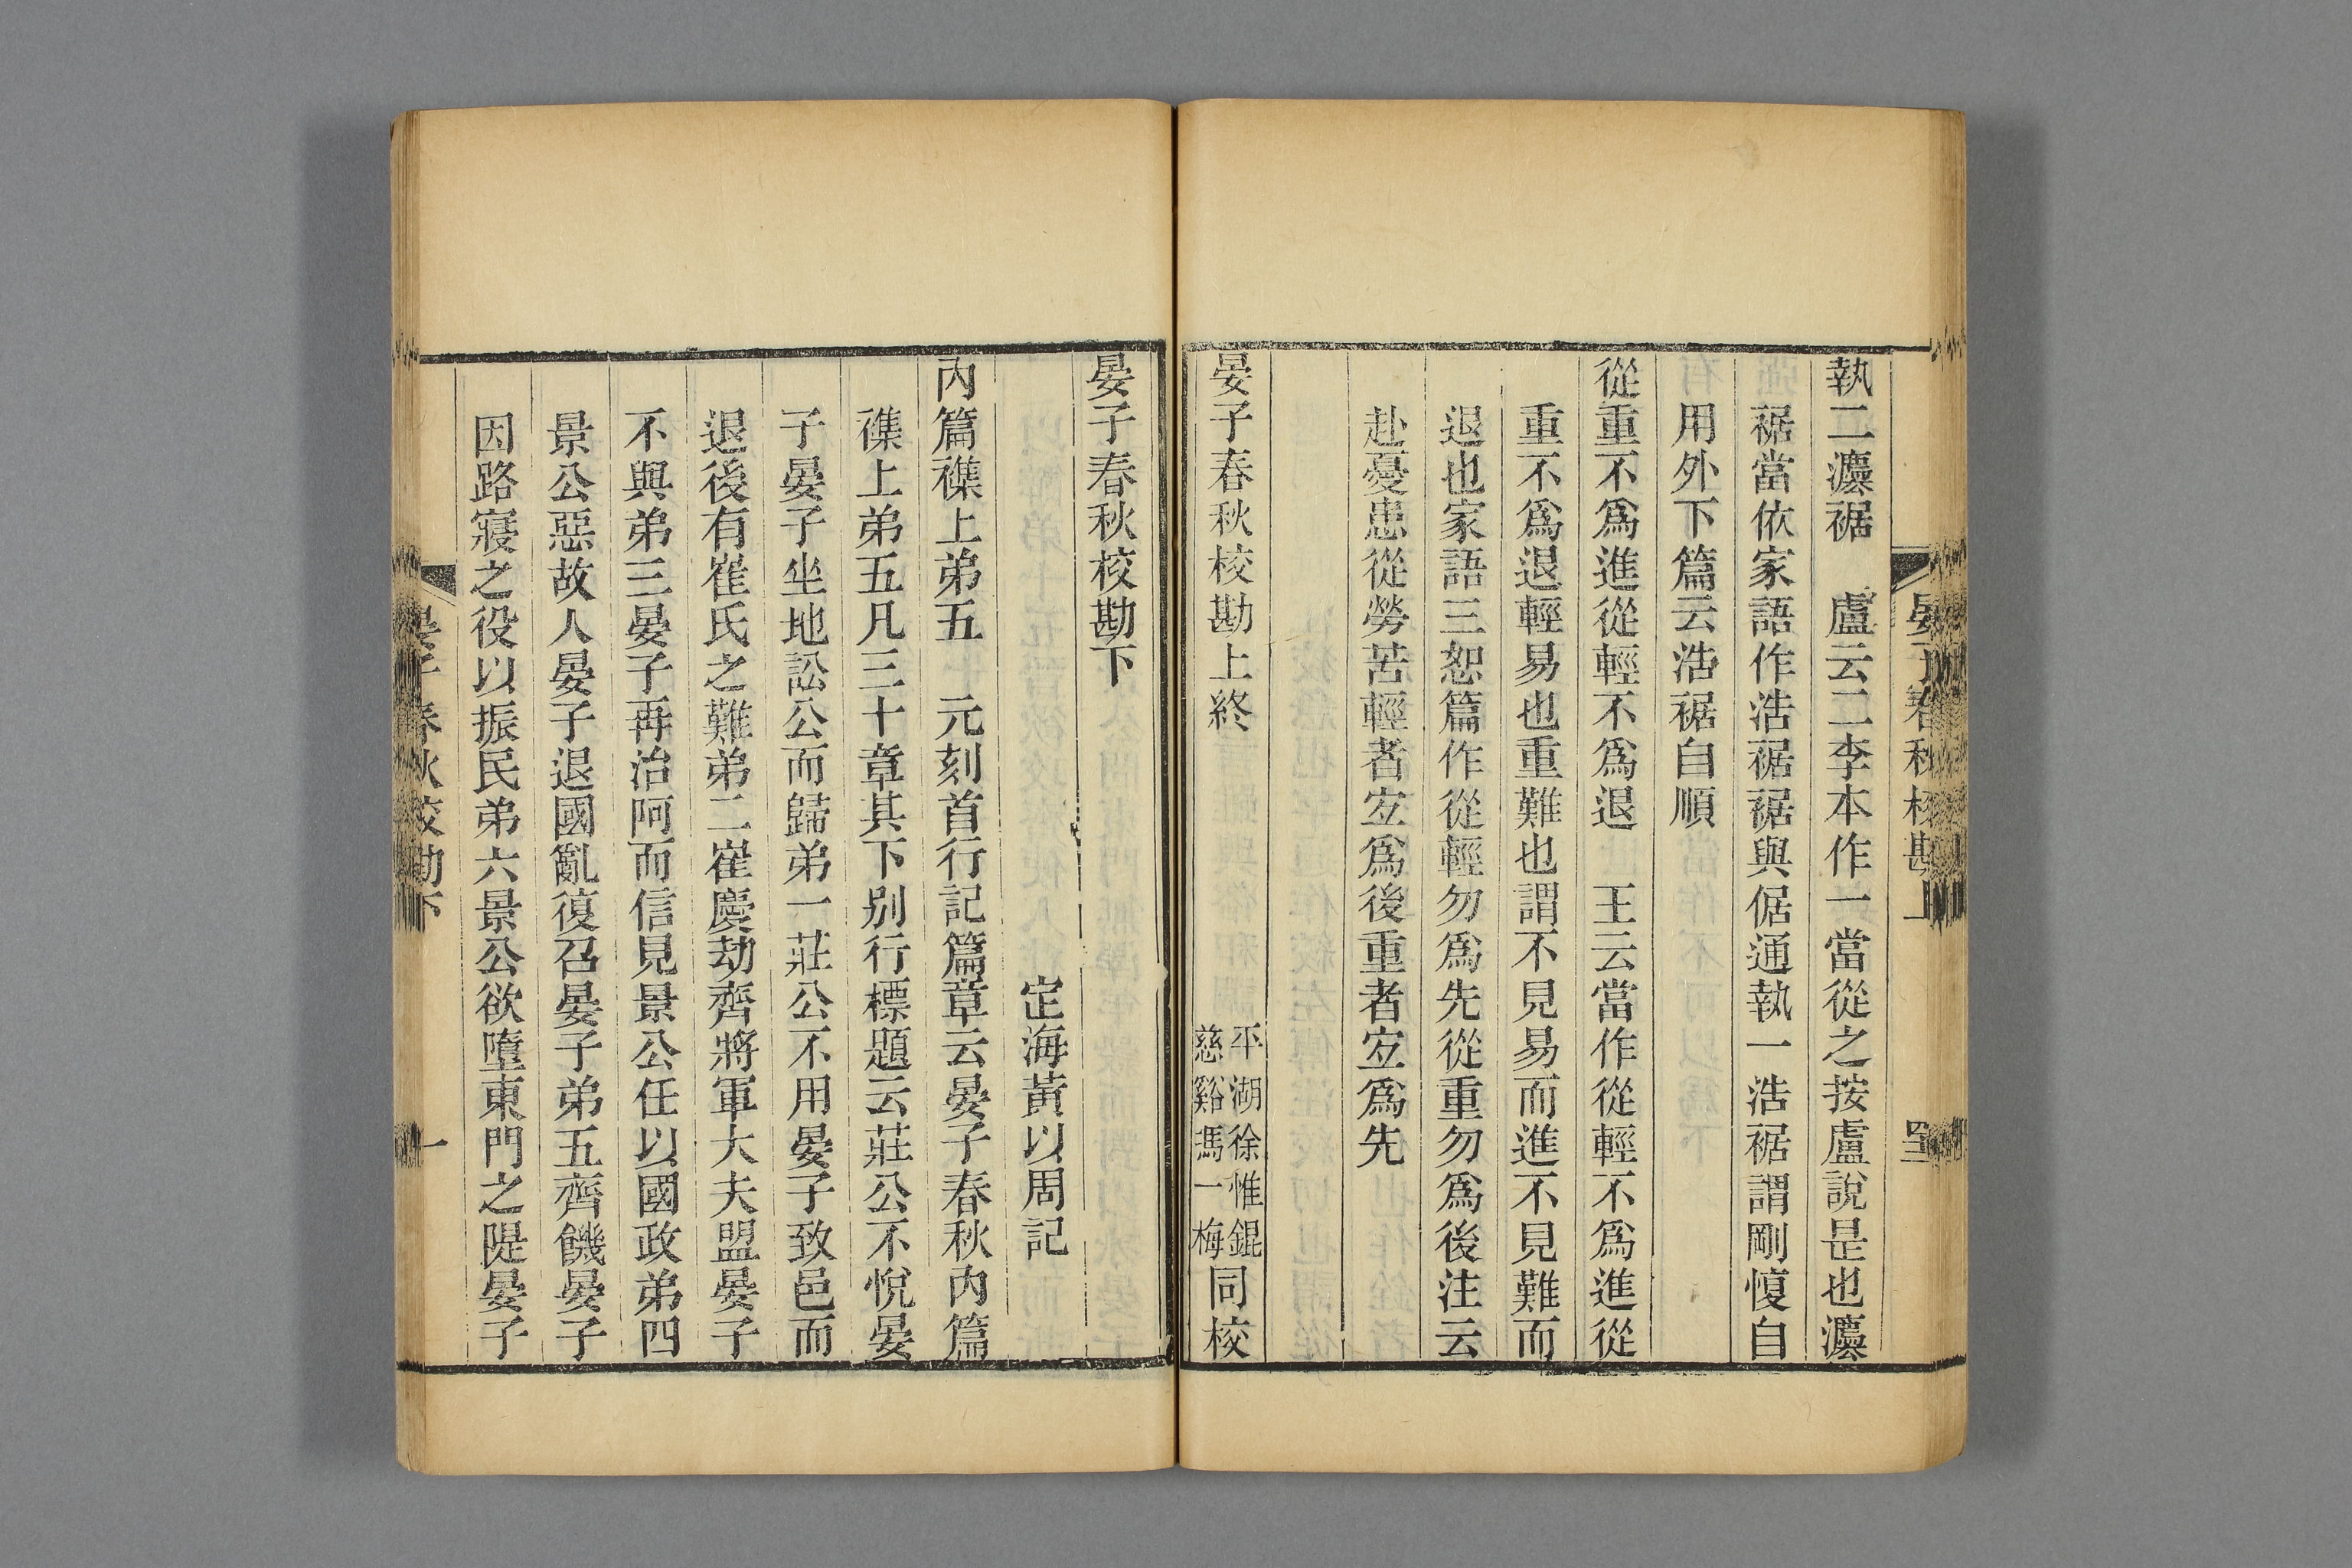 執二灋裾　盧云二李本作一當從之按盧說是也灋
裾當依家語作浩裾裾與倨通執一浩裾謂剛愎自
用外下篇云浩裾自順
從重不爲進從輕不爲退　王云當作從輕不爲進從
重不爲退輕易也重難也謂不見易而進不見難而
退也家語三恕篇作從輕勿爲先從重勿爲後注云
赴憂患從勞苦輕者宐爲後重者宐爲先
晏子春秋校勘上終
平湖徐惟錕
慈谿馮一梅
同校
晏子春秋校勘下
定海黃以周記
內篇襍上弟五　元刻首行記篇章云晏子春秋內篇
襍上弟五凡三十章其下別行標題云莊公不悅晏
子晏子坐地訟公而歸弟一莊公不用晏子致邑而
退後有崔氏之難弟二崔慶劫齊將軍大夫盟晏子
不與弟三晏子再治阿而信見景公任以國政弟四
景公惡故人晏子退國亂復召晏子弟五齊饑晏子
因路寢之役以振民弟六景公欲墮東門之隄晏子
晏子春秋校勘下
一